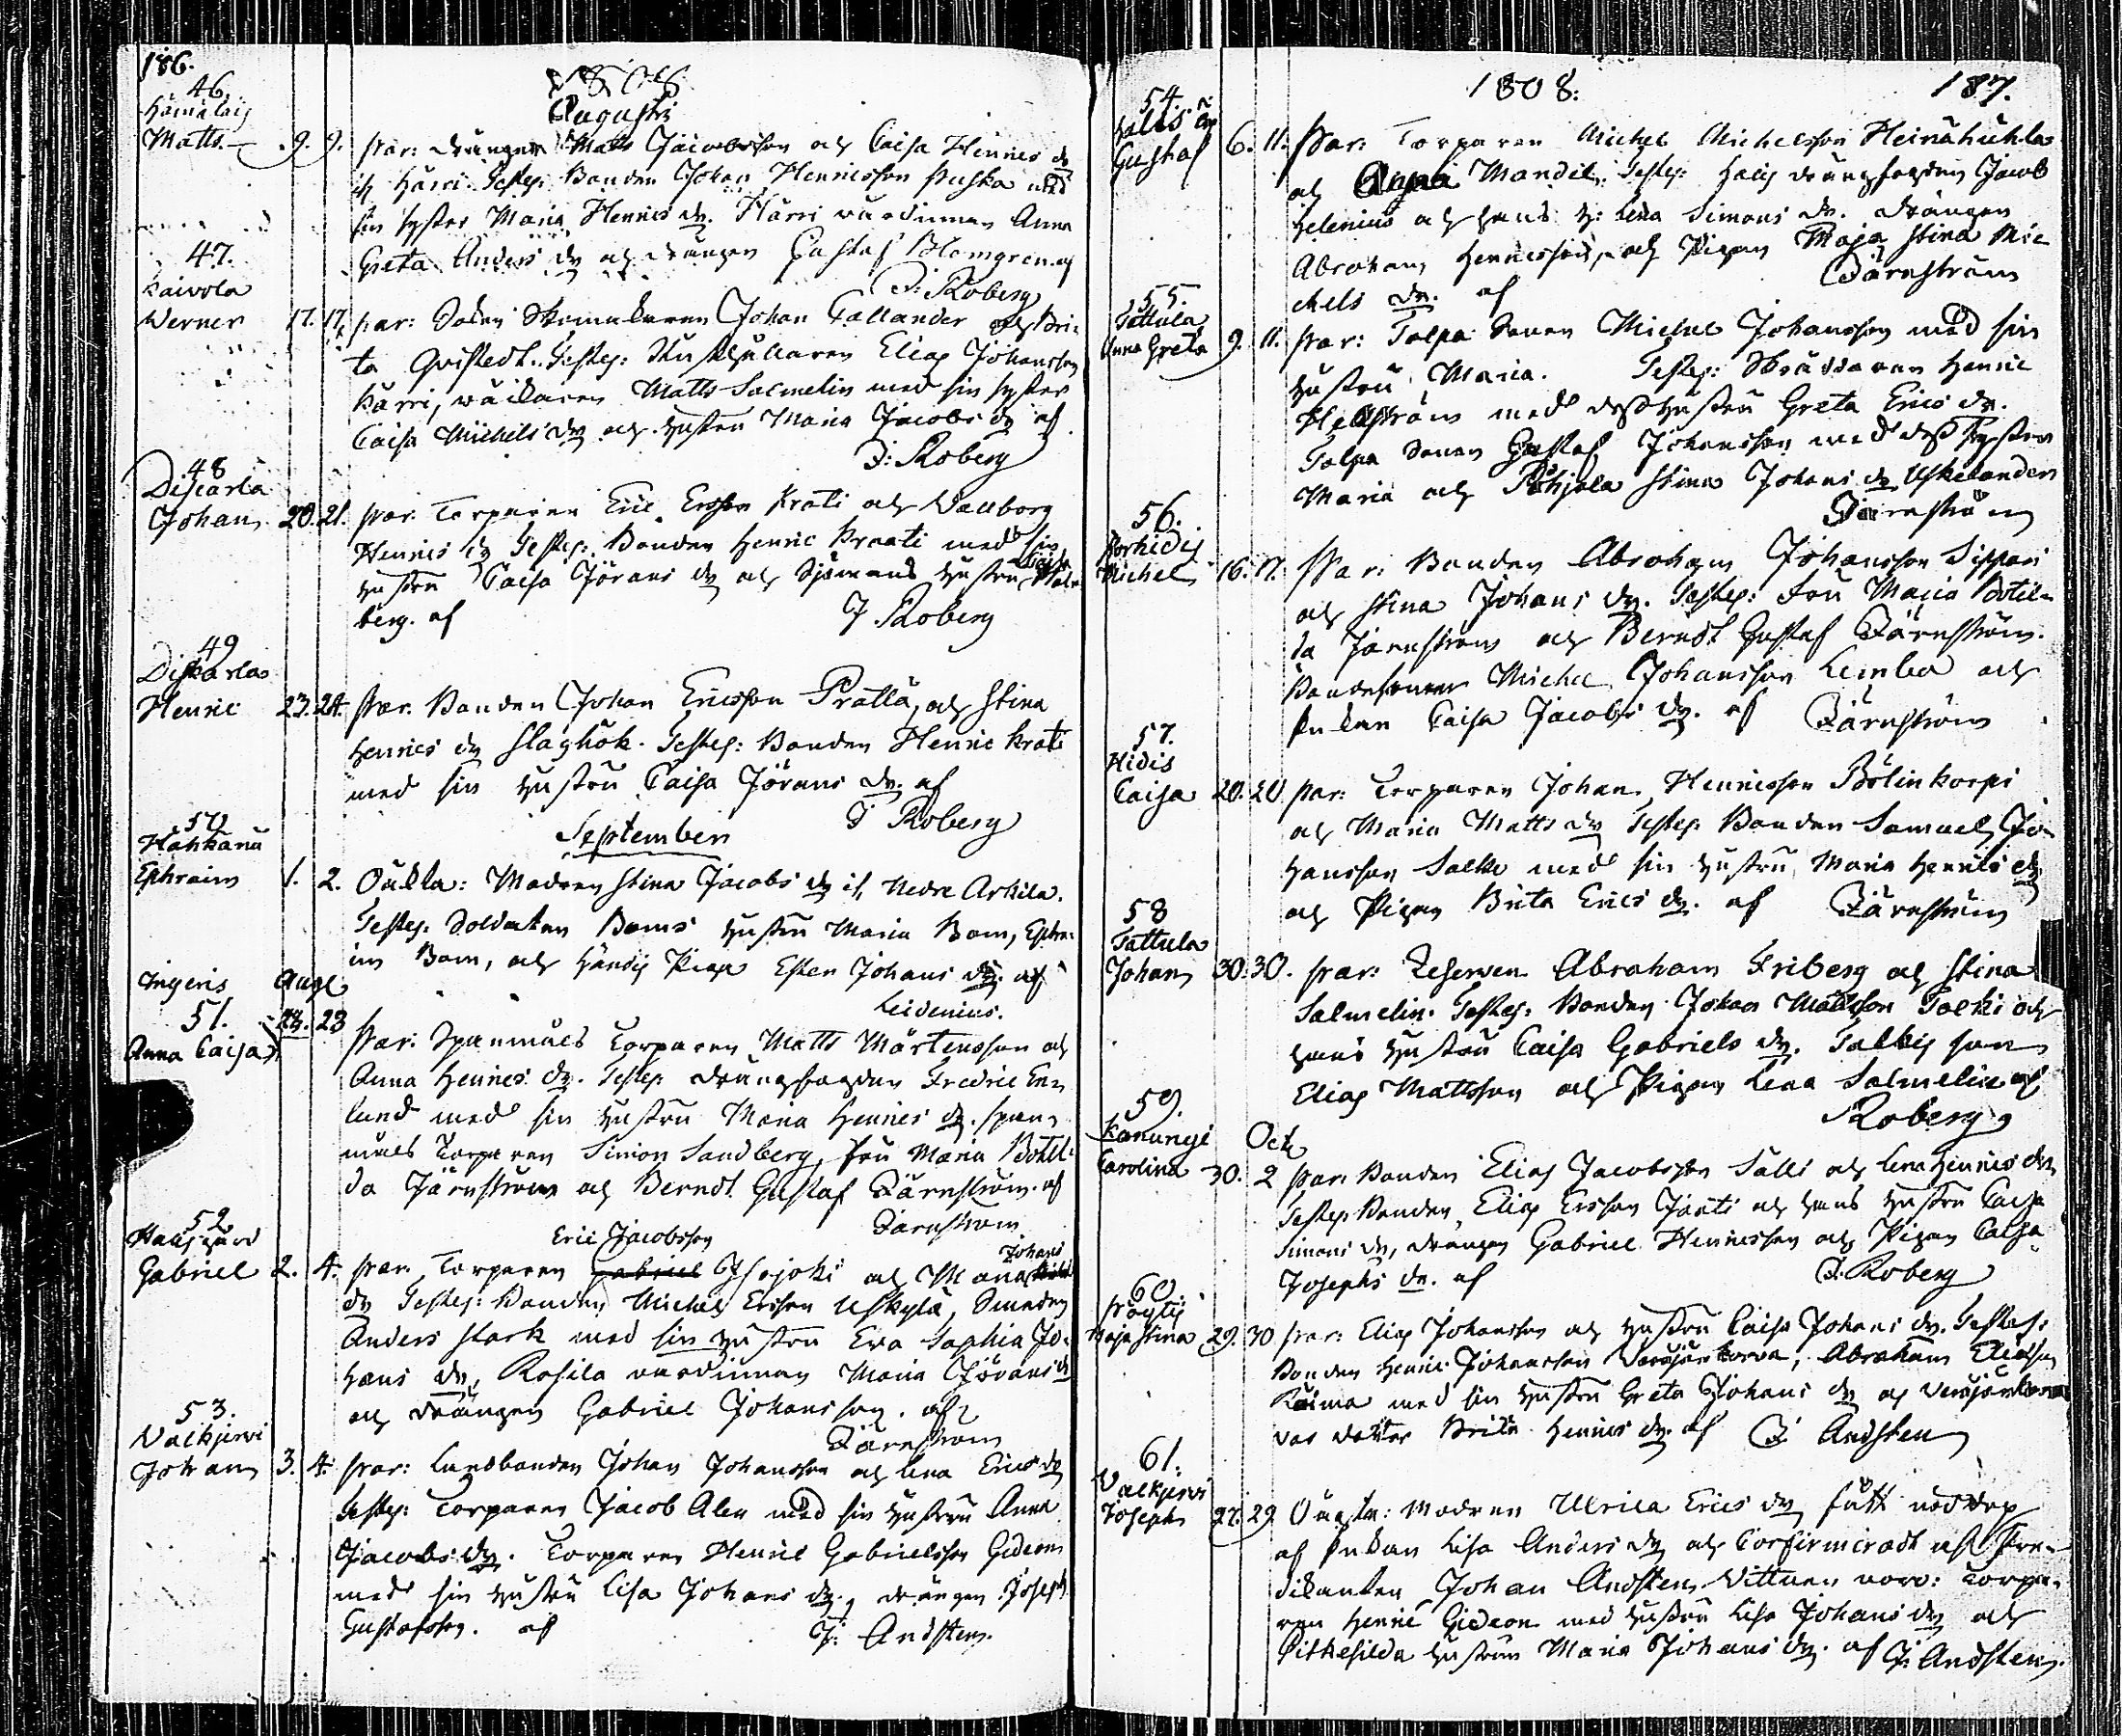 186.
1808
Augusti
46.
Hämälais
Matts. 9. 9. Par: Drängen Matts Jacobsson och Caisa Henrics dr
if. Härri. Testes: Bonden Johan Henricsson Puska med
sin syster Maria Henrics dr. Härri värdinnan Anna
Greta Anders dr och drängen Gustaf Blomgren. af
J: Roberg
47.
Kaivola
Werner 17. 17. par: Skomakaren Johan Tallander och Bri-
ta Qvistedt. Testes: Elias Johansson
Härri, Matts Salmelin med sin syster
Caisa Michels dr och hustru Maria Jacobs dr af
J: Roberg
48
Discarla
Johan 20. 21. par. Torparen Eric Ersson Krati och Wallborg
Henrics dr Testes: Bonden Henric Kraati med sin
hustru Caisa Jörans dr och Sjömans hustru Caisa
berg. af
J Roberg
49
Diskarla
Henric 23. 24. par. Bonden Johan Ericsson Prattä, och Stina
Henrics dr Slaghök. Testes: Bonden Henric Krati
med sin hustru Caisa Jörans dr. af
J Roberg
September
50
Hahkana
Ephraim 1. 2. Oäkta: Modren Stina Jacobs dr if. Nedre Arkila.
Testes: Soldaten Boms hustru Maria Bom, Ephra-
im Bom, och Pigan Ester Johans dr. af
Leidenius.
Ingeris Aug.
51. 23. 23
Anna Caisa par: Spanmäes Torparen Matts Mårtensson och
Anna Henrics dr. Testes: Drängfogden Fredric En-
lund med sin hustru Maria Henrics dr. Span-
mäes Torparen Simon Sandberg, fru Maria Botil-
da Järnström och Berndt Gustaf Järnström. af
Järnström
52
Haisjärd
Gabriel 2. 4. Eric Jacobsson Johans
par. Torparen Gabriel Isojoki och Maria
dr Testes: Bonden Michel Ersson Uskylä, Smeden
Anders Stark med sin hustru Eva Sophia Jo-
hans dr, Rosila värdinnan Maria Jörans dr
och drängen Gabriel Johansson. af
Järnström
53.
Valkjervi
Johan 3. 4. par: Landbonden Johan Johansson och Lena Erics dr
Testes: Torparen Jacob Alen med sin hustru Anna
Jacobs dr. Torparen Henric Gabrielsson Gideon
med sin hustru Lisa Johans dr, drängen Joseph
Gustafsson. af J: Andsten.
1808: 187.
54.
Gustaf 6. 11. Par: Torparen Michel Michelsson Heinähuhta
och Anna Mandil, Testes: Drängfogden Jacob
Helenius och hans h: Lena Simons dr. drängen
Abraham Henricsson, och Pigan Maja Stina Mic-
hels dr. af Järnström
55.
Tattula
Anna Greta 9. 11. par: Talpa Sonen Michel Johansson med sin
hustru Maria. Testes: Skräddaren Henric
Hellström med dess hustru Greta Erics dr.
Talpa Sonen Gustaf Johansson med dess syster
Maria och Pohjala Stina Johans dr Uskelander
Järnström
56.
Korhidis
Michel 16. 17. par: Bonden Abraham Johansson Sippari
och Stina Johans dr. Testes: Fru Maria Botil-
da Järnström och Berndt Gustaf Järnström.
Bondesonen Michel Johansson Lemba och
Enkan Caisa Jacobs dr. af Järnström
57.
Hidis
Caisa 20. 20 par: Torparen Johan Henricsson Bölinkorpi
och Maria Matts dr Testes: Bonden Samuel Jo-
hansson Salki med sin hustru Maria Henrics dr
och Pigan Brita Erics dr. af Järnström
58
Tattula
Johan 30. 30. par: Reserven Abraham Friberg och Stina
Salmelin. Testes: Bonden Johan Mattsson Talki och
hans hustru Caisa Gabriels dr. Talkis son
Elias Mattsson och Pigan Lena Salmelin af
Roberg
59. Oct.
Kanungi
Carolina 30. 2 par: Bonden Elias Jacobsson Salli och Lena Henrics dr
Testes: Bonden Elias Ersson Jaati och hans hustru Caisa
Simons dr, drängen Gabriel Henricsson och Pigan Caisa
Josephs dr. af J: Roberg
60.
Pöytis
Maja Stina 29. 30 par: Elias Johansson och hustru Caisa Johans dr. Testes:
Bonden Henric Johansson Varsjänkorva, Abraham Eliasson
Räima med sin hustru Greta Johans dr och
dotter Brita Henrics dr. af J Andsten
61.
Valkjervi
Joseph 27. 29 Oäkta: Modren Ulrica Erics dr fått nöddop
af Enkan Lisa Anders dr och Confirmeradt af Pre-
dikanten Johan Andsten. Vittnen voro: Torpa-
ren Henric Gideon med hustru Lisa Johans dr och
hustrun Maria Johans dr. af J: Andsten.